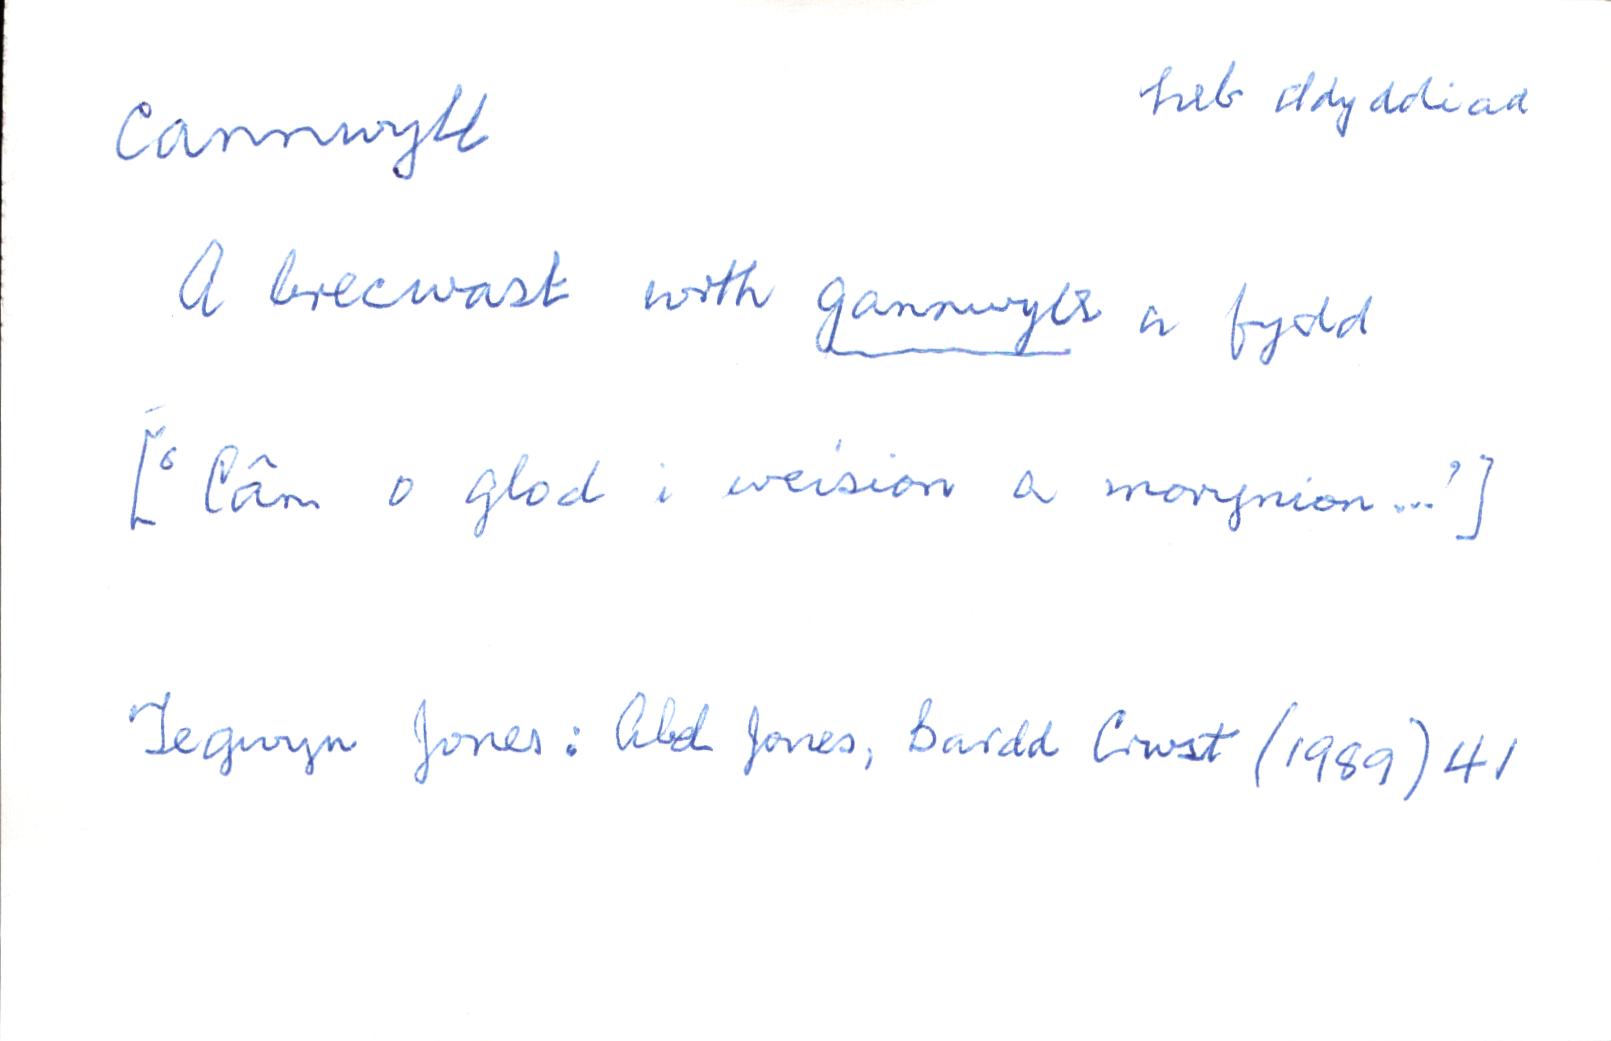 Cannwyll
heb ddyddiad
A brecwast wrth gannwyll a fydd
['Cân o glod i weision a morynion...']
Tegwyn Jones: Abel Jones, Bardd Crwst (1989) 41